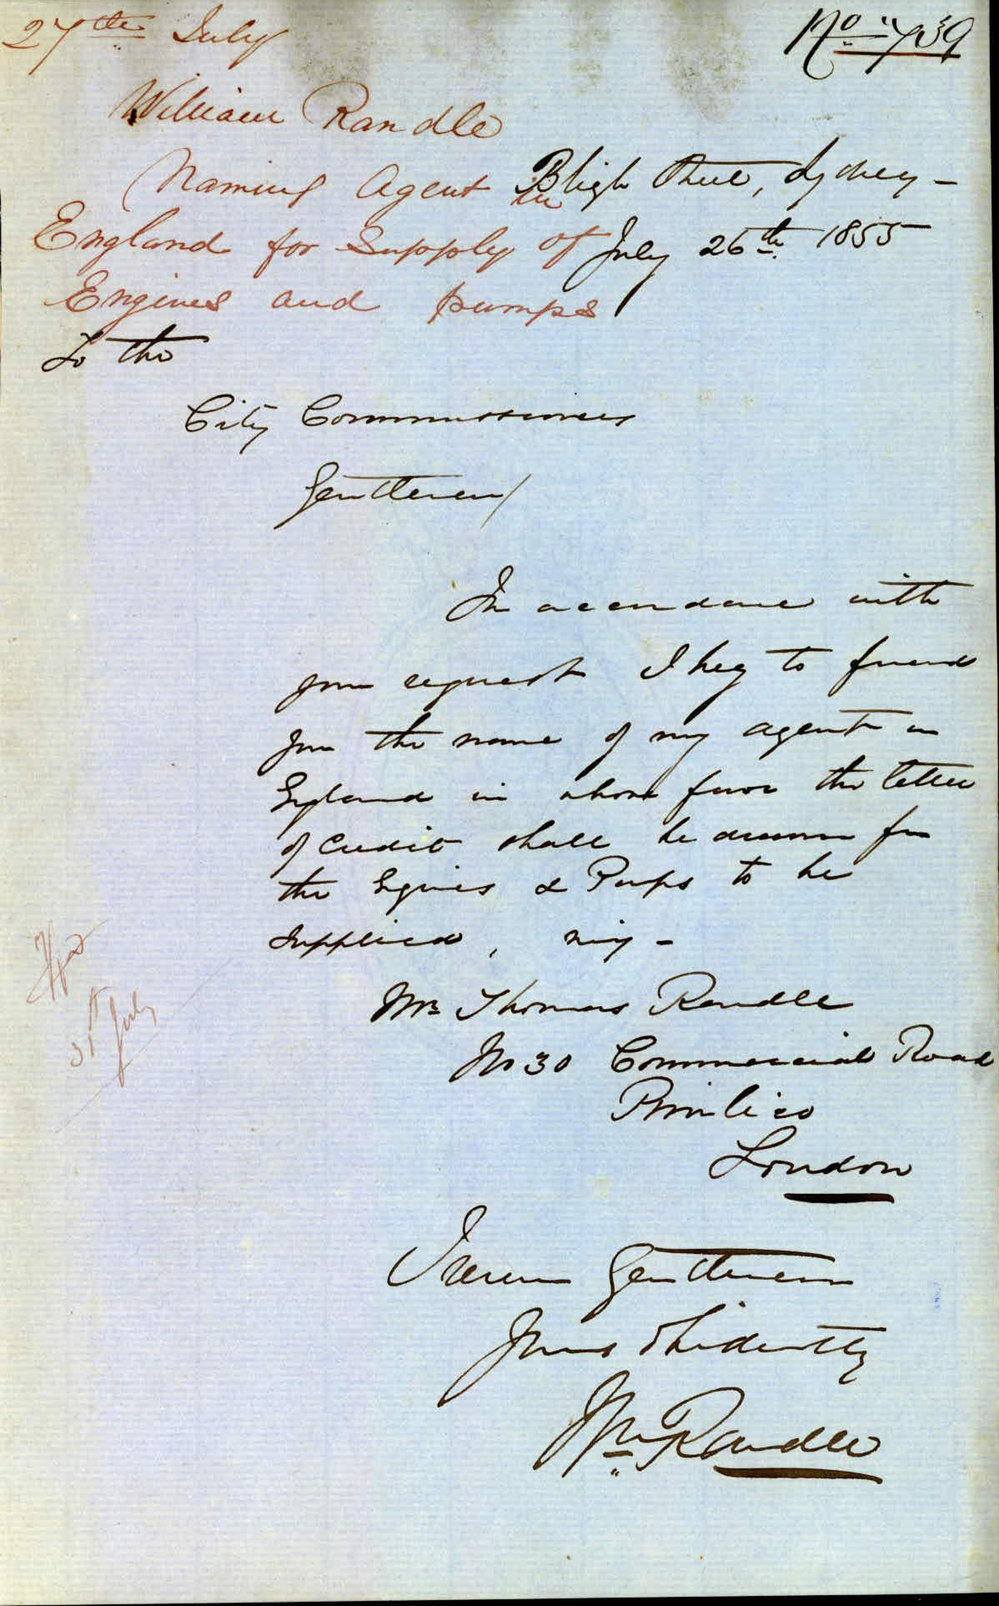 27th July
No "739
William Randle
Naming Agent in
Bligh Street, Sydney -
England for Supply of
July 26th 1855
Engines and pumps
To the
City Commissioners
Gentlemen/
In accordance with
your request I beg to forward
you the name of my agent in
England in whose favor the letter
of Credit shall be drawn for
the Engines & Pumps to be
supplied, viz -
31st July
Mr Thomas Randle
No 30 Commercial Road
Pimlico
London
I remain Gentlemen
Yours obediently
Wm Randle